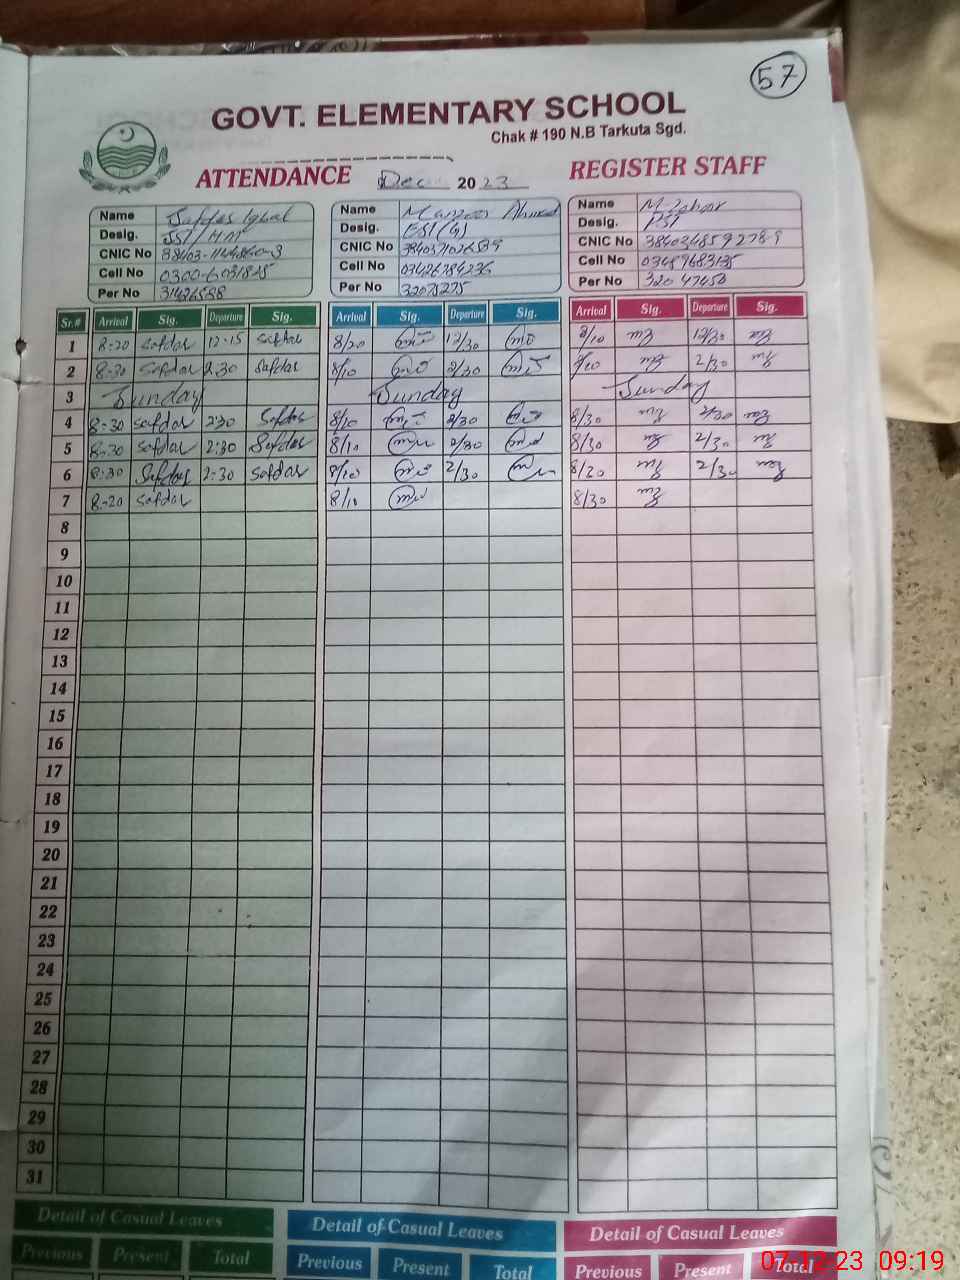 57
GOVT. ELEMENTARY SCHOOL
Chak # 190 N.B Tarkuta Sgd.
ATTENDANCE Dec 2023 REGISTER STAFF
Name Safdar Iqbal Name Manzoor Ahmed Name
Desig. SST/HM Desig. EST(G) Desig. PST
CNIC No CNIC No CNIC No
Cell No Cell No Cell No
Per No Per No 32075275 Per No
Sr.# Arrival Sig. Departure Sig. Arrival Sig. Departure Sig. Arrival Sig. Departure Sig.
1 8-20 safdar 12-15 safdar 8/20 12/30 8/10 12/30
2 8-30 safdar 2.30 safdar 8/10 2/30 8/20 2/30
3 Sunday Sunday Sunday
4 8-30 safdar 2:30 Safdar 8/10 2/30 8/30 2/30
5 8-30 safdar 2:30 Safdar 8/10 2/30 8/30 2/30
6 8:30 Safdar 2-30 safdar 8/10 2/30 8/20 2/30
7 8-20 safdar 8/10 8/30
8
9
10
11
12
13
14
15
16
17
18
19
20
21
22
23
24
25
26
27
28
29
30
31
Detail of Casual Leaves Detail of Casual Leaves Detail of Casual Leaves
Previous Present Total Previous Present Total Previous Present Total
07-12-23 09:19